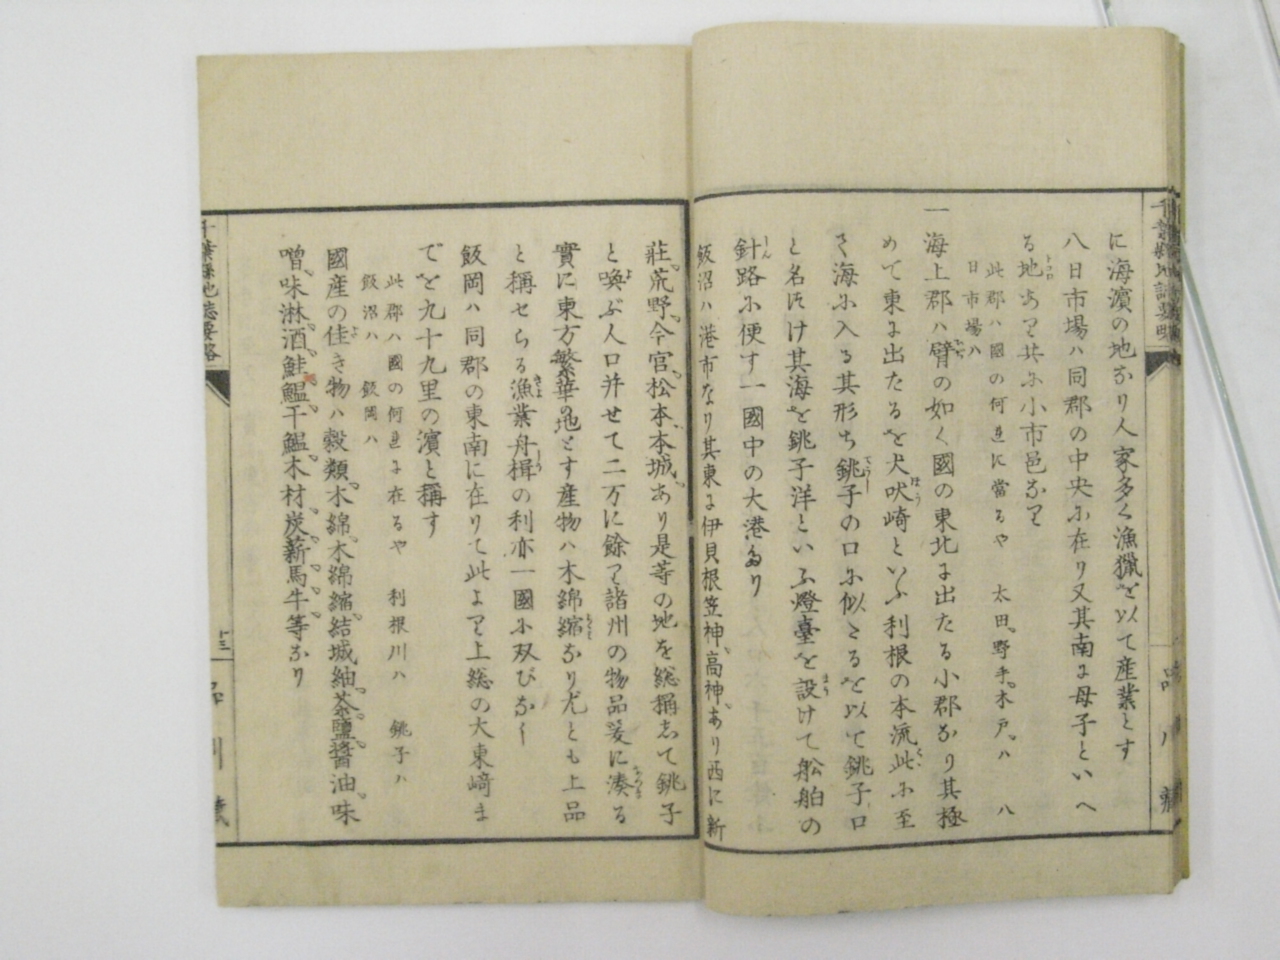 に海濵の地なり人家多く漁獵を以て産業とす
八日市場ハ同郡の中央に在り又其南に母子といへ
る地ありて共に小市邑なり
此郡ハ國の何れに當るや 太田野手木戸ハ 八
日市場ハ
一海上郡ハ臂の如く國の東北に出たる小郡なり其極
めて東に出たるを犬吠崎といふ利根の本流此に至
て海に入る其形ち銚子の口に似たるを以て銚子口
と名づけ其海を銚子洋といふ燈臺を設けて舩舶の
針路に便す一國中の大港なり
飯沼ハ港市なり其東に伊貝根笠神高神あり西に新
荘荒野今宮松本本城あり是等の地を総稱して銚子
と喚ぶ人口并せて二万に餘り諸州の物品爰に湊る
實に東方繁華の地とす産物ハ木綿縮なり尤とも上品
と稱せらる漁業舟楫の利亦一國に双びなし
飯岡ハ同郡の東南に在りて此より上総の大東﨑ま
でを九十九里の濵と稱す
此郡ハ國の何れに在るや 利根川ハ 銚子ハ
飯沼ハ 飯岡ハ
國産の佳き物ハ穀類木綿木綿縮結城紬茶鹽醬油味
噌味淋酒鮭鰮干鰮木材炭薪馬牛等なり
千葉縣地誌要略